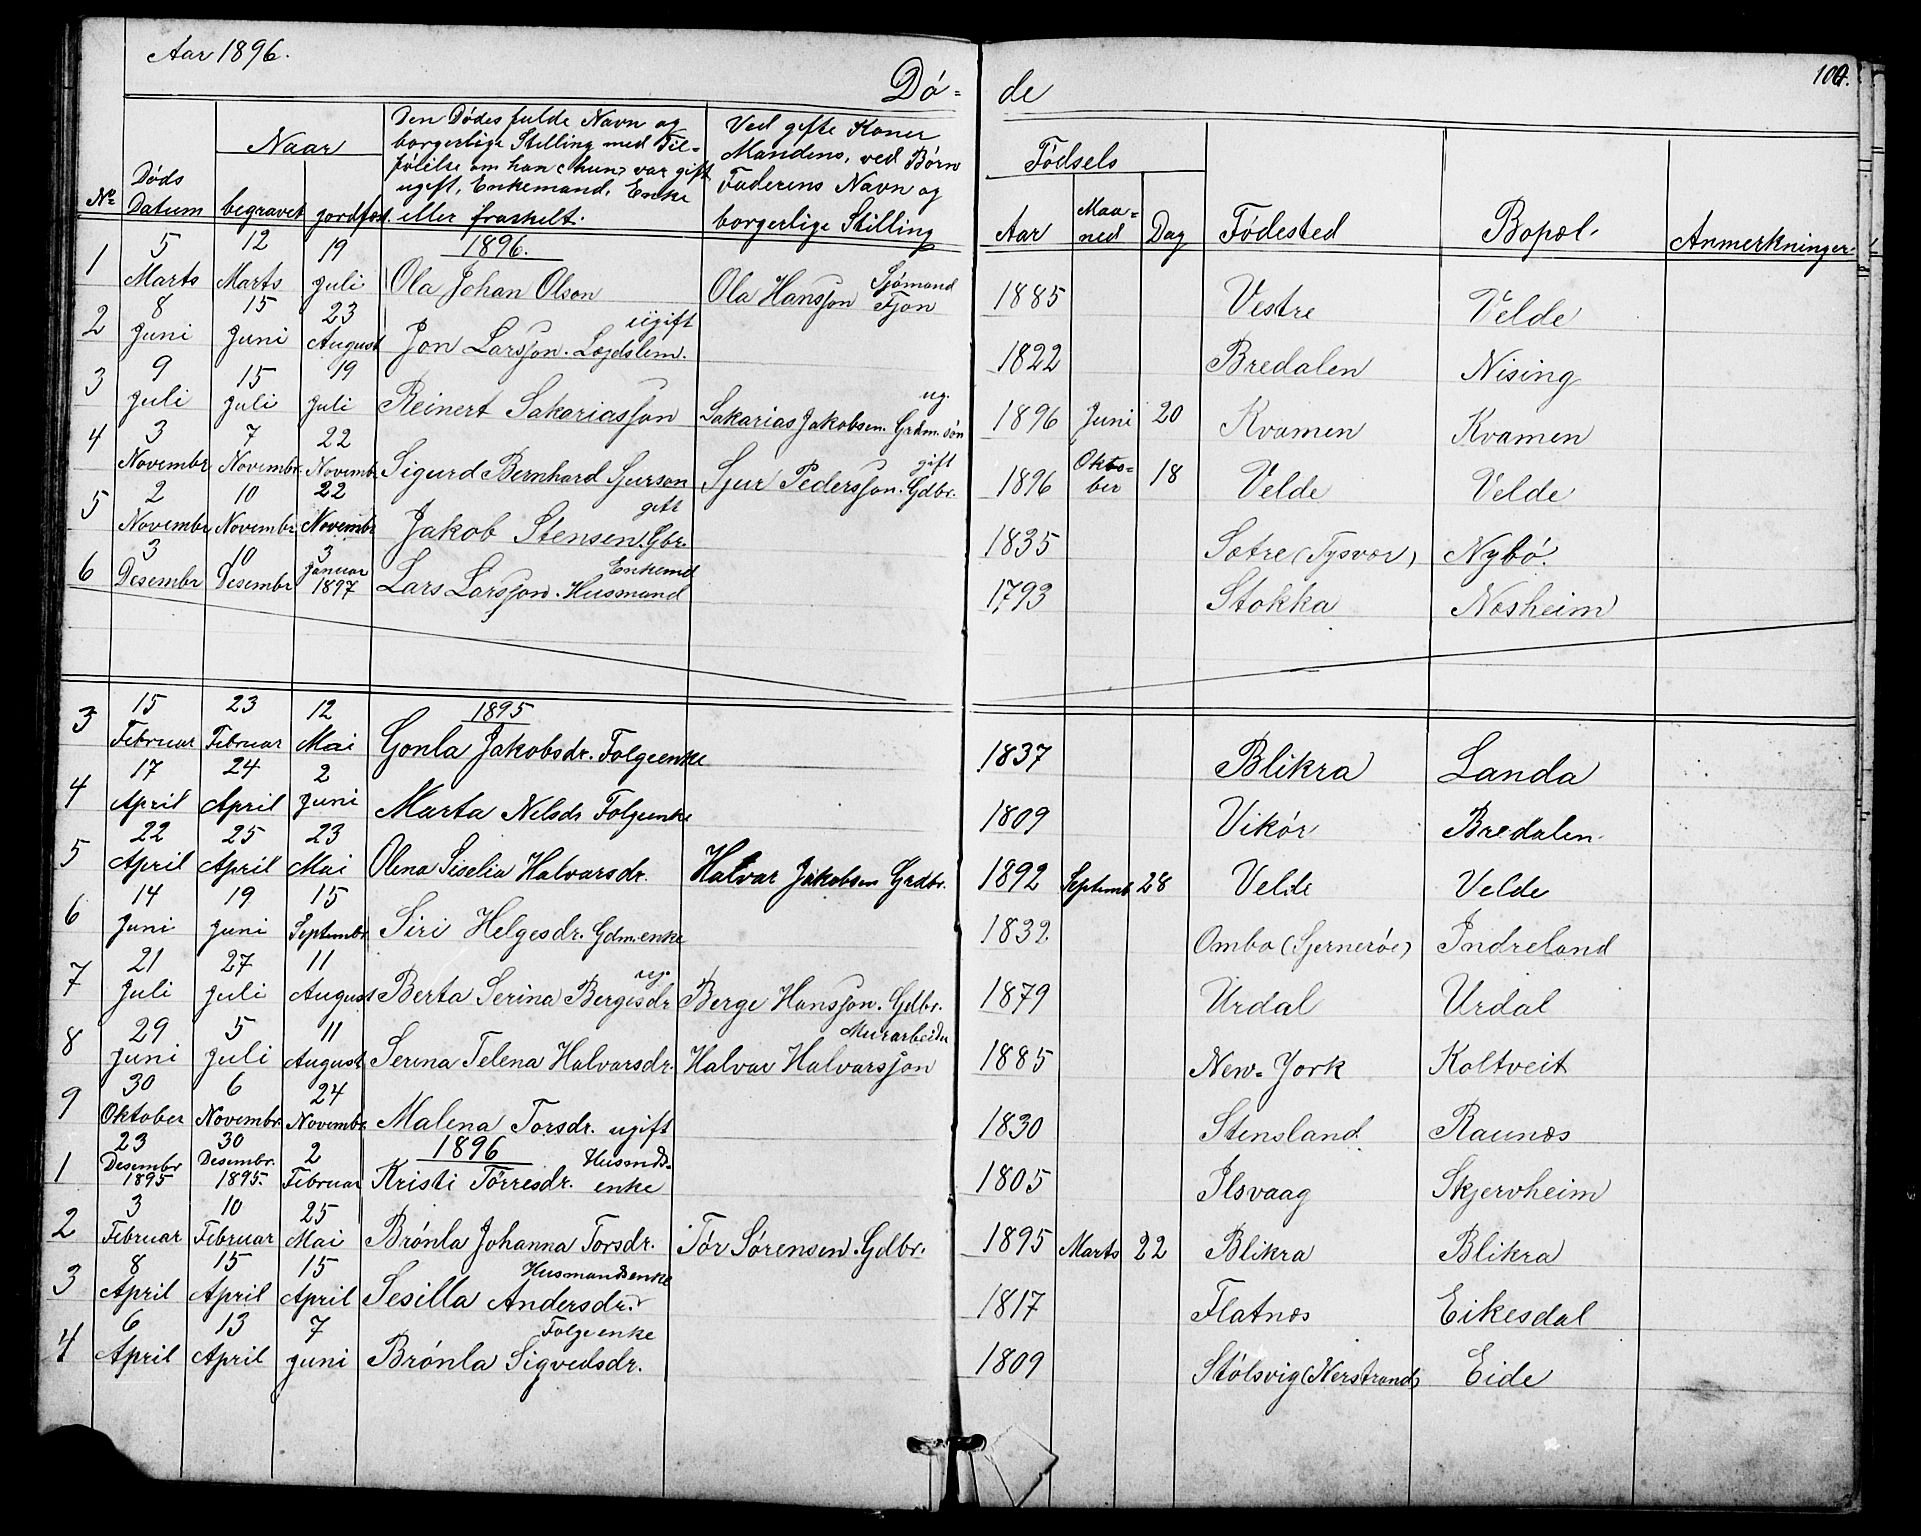 Aar 1896.
Dö= de
100.
Naar
Fødsels
No Döds Datum begravet jordfæst. Den Dødes fulde Navn og borgerlige Stilling med Til= føielse om han (hun) var gift ugift, Enkemand, Enke eller fraskelt. Ved gifte Koner Mandens, ved Børn Faderens Navn og borgerlige Stilling Aar Maa= ned Dag Födested Bopæl. Anmerkninger.
1896.
1 5 Marts 12 Marts 19 Juli Ola Johan Olson Ola Hansson Sjømand Fjon 1885 Vestre Velde
2 8 Juni 15 Juni 23 August Jon Larsson. Lægdslem. ugift 1822 Bredalen Nising
3 9 Juli 15 Juli 19 Juli Reinert Sakariasson Sakarias Jakobsen. Grdm. søn ug. 1896 Juni 20 Kvamen Kvamen
4 3 Novembr 7 Novembr. 22 Novembr Sigurd Bernhard Sjurson Sjur Pedersson. Gdbr. gift 1896 Okto= ber 18 Velde Velde
5 2 Novembr 10 Novembr 22 Novembr Jakob Stensen. Gbr. gift 1835 Sætre (Tysvær) Nybö.
6 3 Desembr 10 Desembr 3 Januar 1897 Lars Larsson. Husmand Enkemd 1793 Stokka Næsheim
1895
3 15 Februar 23 Februar 12 Mai Gonla Jakobsdr. Folgeenke 1837 Blikra Landa
4 17 April 24 April 2 Juni Marta Nelsdr Folgeenke 1809 Vikör Bredalen.
5 22 April 25 April 23 Mai Olena Siselia Halvarsdr. Halvar Jakobsen Grdbr. 1892 Septemb 28 Velde Velde
6 14 Juni 19 Juni 15 Septembr Siri Helgesdr. Gdm.enke 1832. Ombo (Sjernerøe) Indreland
7 21 Juli 27 Juli 11 August Berta Serina Bergesdr ug. Berge Hansson. Gdbr. 1879 Urdal Urdal
8 29 Juni 5 Juli 11 August Serina Telena Halvarsdr. Halvar Halvarsson Murarbeider 1885 New-York Koltveit
9 30 Oktober 6 Novembr. 24 Novembr Malena Torsdr. ugift 1830 Stensland Raunæs
1896
1 23 Desembr 1895 30 Desembr. 1895. 2 Februar Kristi Törresdr. Husmds= enke 1805 Ilsvaag Skjervheim
2 3 Februar 10 Februar 25 Mai Brönla Johanna Torsdr. Tör Sørensen. Gdbr. 1895 Marts 22 Blikra Blikra
3 8 April 15 April 15 April Sesilla Andersdr. Husmandsenke 1817 Flatnæs Eikesdal
4 6 April 13 April 7 Juni Brönla Sigvedsdr. Folgeenke 1809 Stölsvig (Nerstrand) Eide